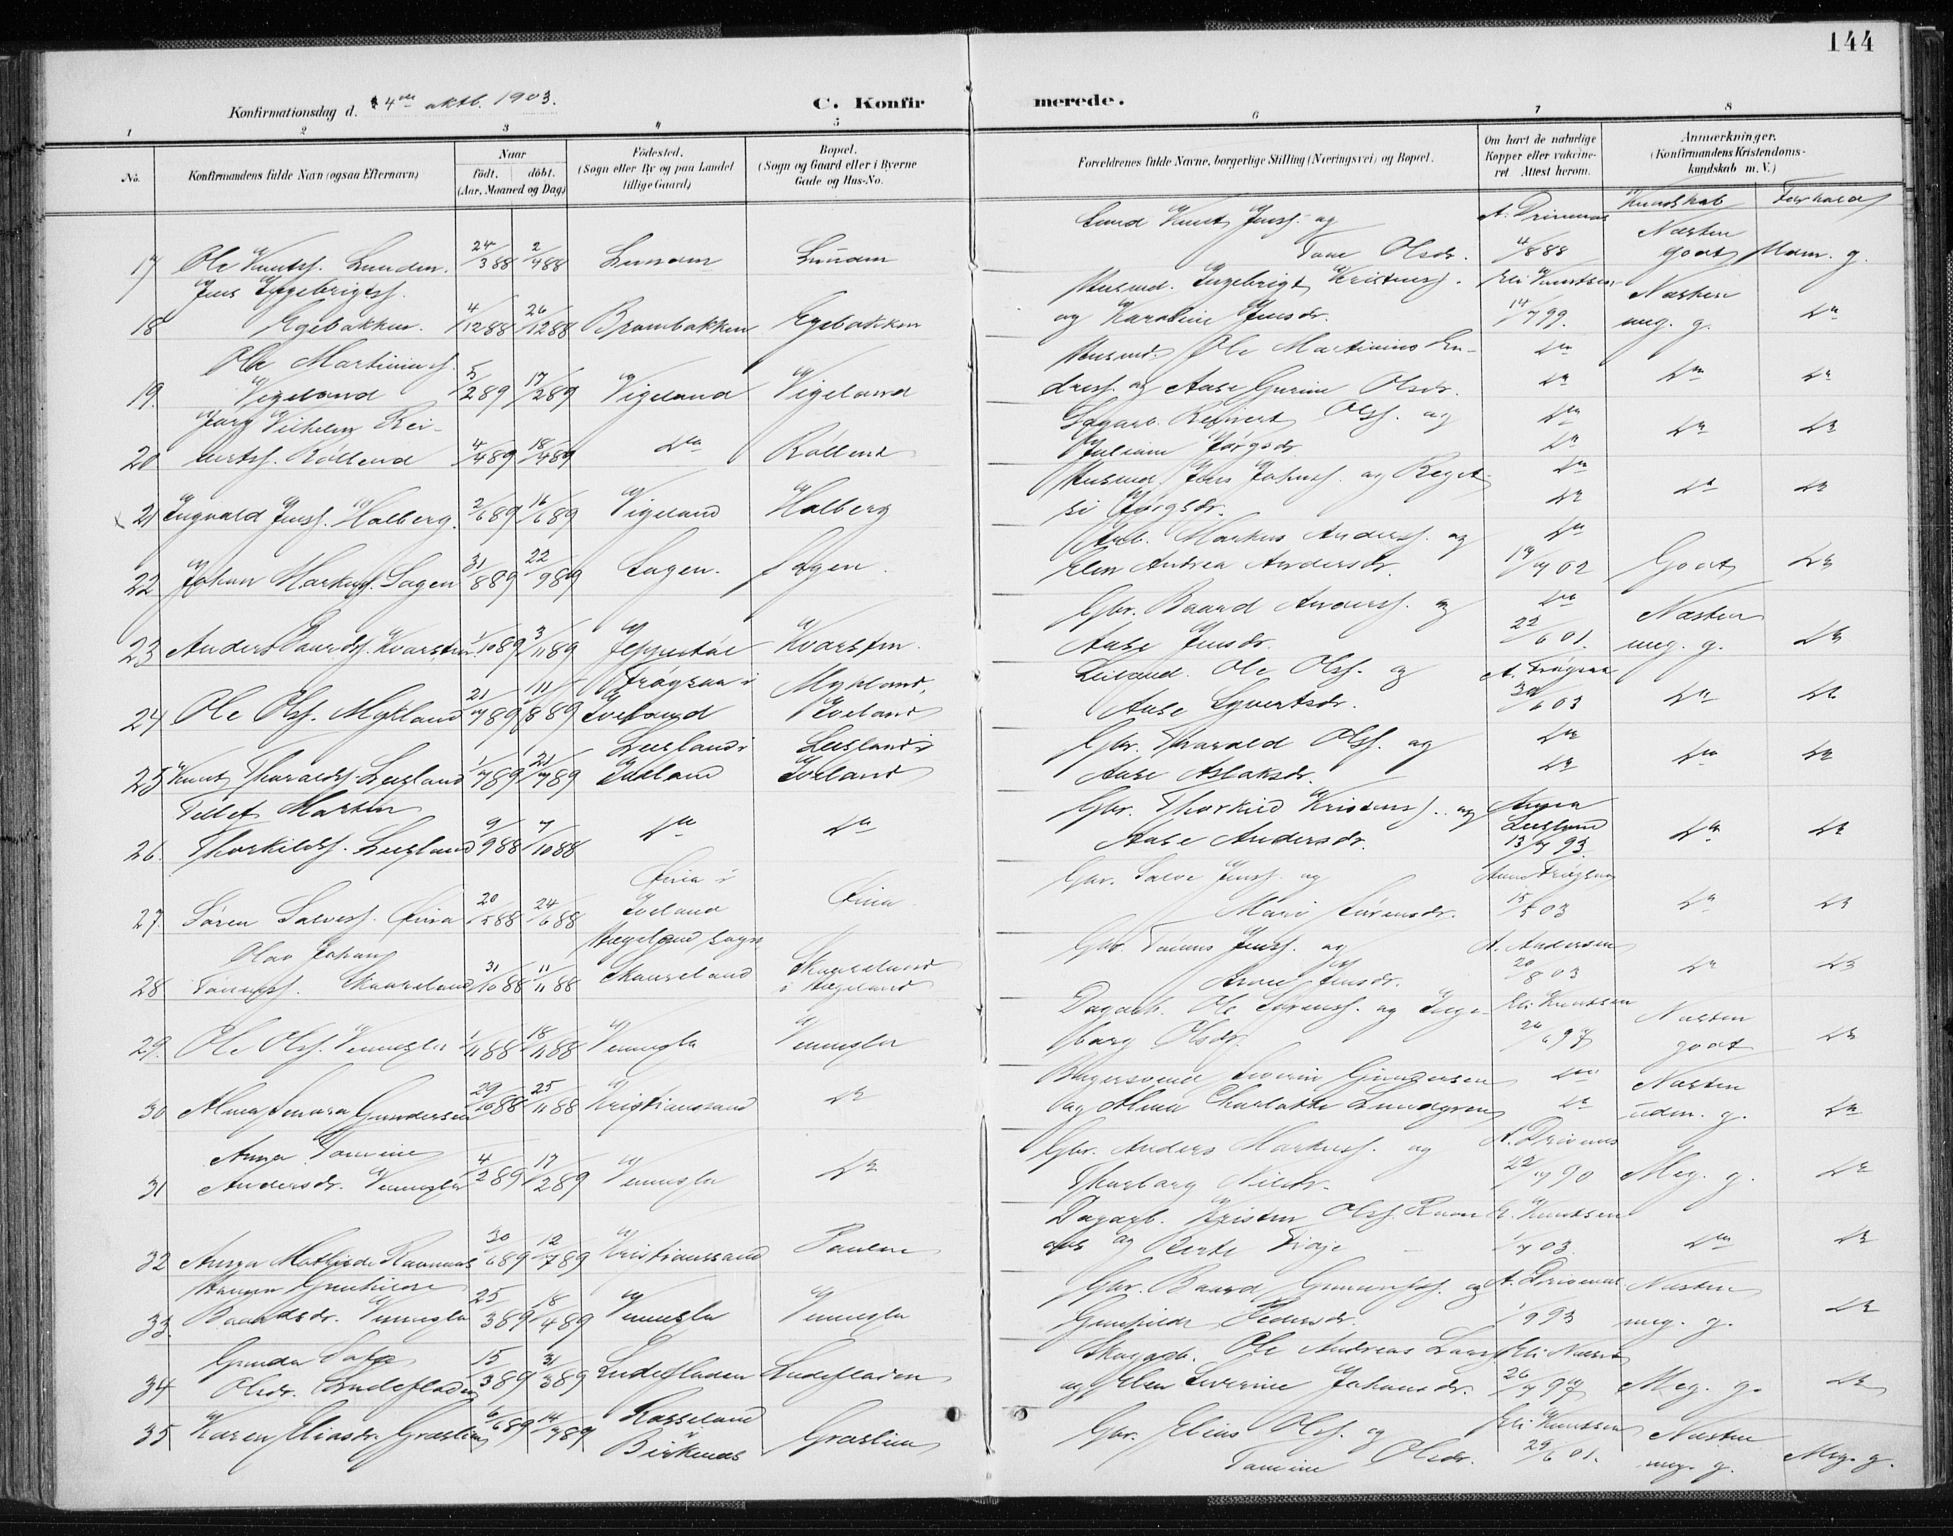 144
Konfirmationsdag d. 4de oktb. 1903.
C. Konfirmerede.
1 2 3 4 5 6 7 8
No.
Konfirmandens fulde Navn (ogsaa Efternavn)
Naar
født. døbt.
(Aar, Maaned og Dag)
Fødested.
(Sogn eller By og paa Landet
tillige Gaard)
Bopæl.
(Sogn og Gaard eller i Byerne
Gade og Hus-No.
Forældrenes fulde Navne, borgerlige Stilling (Næringsvei) og Bopæl.
Om havt de naturlige
Kopper eller vakcine-
ret Attest herom.
Anmærkninger.
(Konfirmandens Kristendoms-
kundskab m. V.)
Kundskab Forhold
17 Ole Knutss. Lunden. 24/3 88 2/4 88 Lunden Lunden
Knut Jenss. og
Tone Olsdr. 4/8 88 Næsten godt Udm. g.
18 Jens Ingebrigtss. Egebakken. 4/12 88 26/12 88 Brambakken Egebakken
Husmd. Ingebrigt Kristenss.
og Karoline Jensdr. Eli Knutssen 14/7 99. Næsten meg. g. do
19. Ole Martinius Vigeland 5/2 89 17/2 89 Vigeland Vigeland
Husmd. Ole Martinius En-
dress. og Aase Gurine Olsdr. do do do do
20 Jørg Vilhelm Rei-
nertss. Rølland 4/4 89 18/4 89 do Rølland
Reinert Olss. og
Juliane Jørgsdr. do do do do
21 Ingvald Jenss. Holberg. 2/6 89 16/6 89 Vigeland Holberg
Husmd Jens Johnss. og Reget-
si Jørgsdr. do do do do
22 Johan Markuss. Sagen 31/8 89 22/9 89 Sagen. Sagen.
Arb. Markus Anderss. og
Elen Andrea Andersdr. do 19/7 02 Godt do
23 Anders Baardss. Kvarsten 1/10 89 3/11 89 Jeppestøl Kvarsten.
Gbr. Baard Anderss. og
Aase Jensdr. do 22/6 01. Næsten meg. g. do
24 Ole Olss. Mykland 21/7 89 11/8 89 Frøysaa i Iveland Mykland, Iveland
Leiland. Ole Olss. og
Aase Syvertsdr. A. Frøysaa 30/6 03 do do
25 Knut Tharaldss. Ljosland 1/7 89 21/7 89 Ljosland i Iveland Ljosland i Iveland
Gbr. Tharald Olss. og
Aase Aslaksdr. do do do do
26. Tellef Martin
Thorkildss. Ljosland 9/9 88 7/10 88 do do
Gbr. Thorkild Kristenss. og
Aase Andersdr. 13/7 93. do do
27. Søren Salvess. 20/5 88 24/6 88 Iveland
Gbr. Salve Jenss. og
Mari Sørensdr. 15/5 03 do do
28 Olav Johan
Tønness. Skaareland 31/10 88 11/11 88 Hægeland sogn Skaareland Skaareland i Hægeland
Gbr. Tønnes Jenss. og
Anne Jensdr. A. Andersen 20/8 03 do do
29. Ole Olss. Vennesla 1/11 88 18/11 88 Vennesla Vennesla
Dagarb. Ole Sørenss. og Inge-
borg Olsdr. Eli Knutssen 26/6 97 Næsten godt do
30 Alma Gundersen 29/10 88 25/11 88 Kristianssand do
Bagersvend Severin Gundersen
og Alma Charlotte Lundgren do do Næsten udm. g. do
31 Anna Tomine
Andersdr. Vennesla 4/2 89 17/2 89 Vennesla do
Gbr. Anders Markuss. og
Thorborg Nilsdr. A. Drivenes 22/7 90 Meg. g. do
32 Anna Mathilde Raanaas 30/6 89 12/7 89 Kristianssand Paulen
Dagarb. Kristen Olss. Raan-
aas og Berte Frøje E. Knutssen 1/7 03. do do
33. Hanna Gunhilde
Baardsdr. Vennesla 25/3 89 18/4 89 Vennesla Vennesla
Gbr. Baard Gunnufss. og
Gunhilde Pedersdr. A. Drivenes 1/9 93 Næsten meg. g. do
34 Gunda Sofie
Olsdr. Ludefladen 15/3 89 31/3 89 Ludefladen Ludefladen
Skogarb. Ole Andreas Larss.
og Elen Severine Johansdr. 26/7 97 Meg. g. do
35 Karen Eliasdr. Graslien 6/6 89 14/7 89 Rosseland Birkenes Graslien
Gbr. Elias Olss. og
Tomine Olsdr. Eli Knutssen 29/6 01. Næsten meg. g. Meg. g.